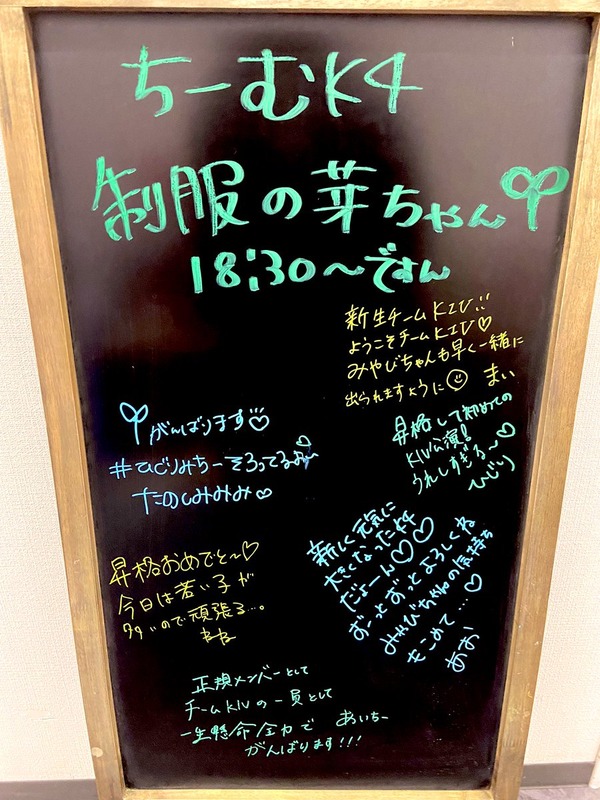 ちーむK4
制服の芽ちゃん
18:30〜ですん
新生チームKⅣ!!
ようこそチームKⅣ♡
みやびちゃんも早く一緒に
出られますように☺ まい
昇格して初めての
KⅣ公演!
うれしすぎる〜♡
ひじり
がんばります♡
#ひじりみちーそろってるよ〜
たのしみみみ♡
新しく元気に
大きくなったK4
だよーん♡♡
ずーっとずっとよろしくね
みやびちゃんの気持ち
をこめて…♡
あお、
昇格おめでと〜♡
今日は若い子が
多いので頑張る…。
正規メンバーとして
チームKⅣの一員として
一生懸命全力で あいちー
がんばります!!!